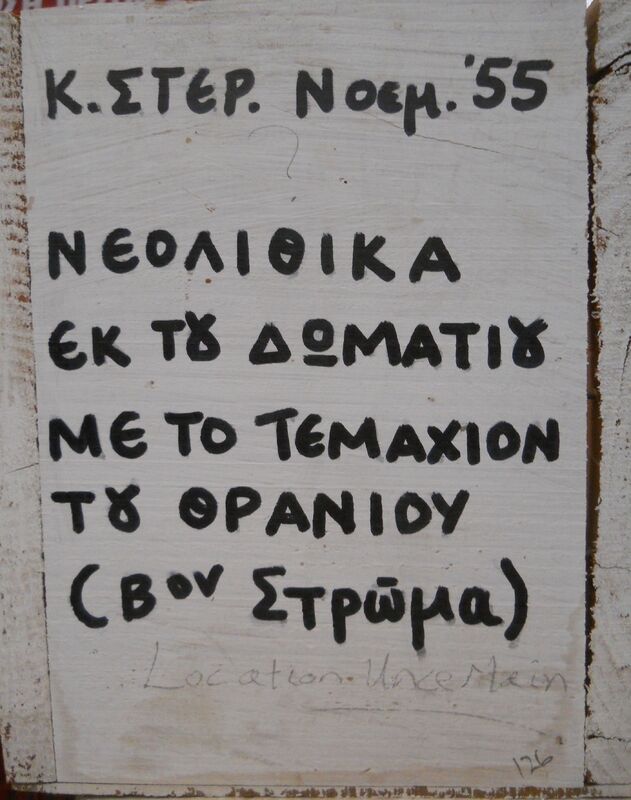 Κ. ΣΤΕΡ. Νοεμ. '55
?
ΝΕΟΛΙΘΙΚΑ
ΕΚ ΤȢ ΔΩΜΑΤΙȢ
ΜΕ ΤΟ ΤΕΜΑΧΙΟΝ
ΤȢ ΘΡΑΝΙΟΥ
(Βον Στρῶμα)
Location Uncertain
126